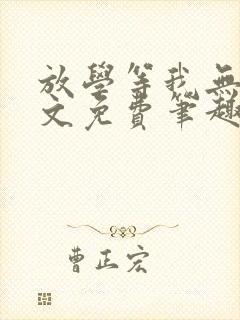 放學等我無
文免費筆趣
曹正宏